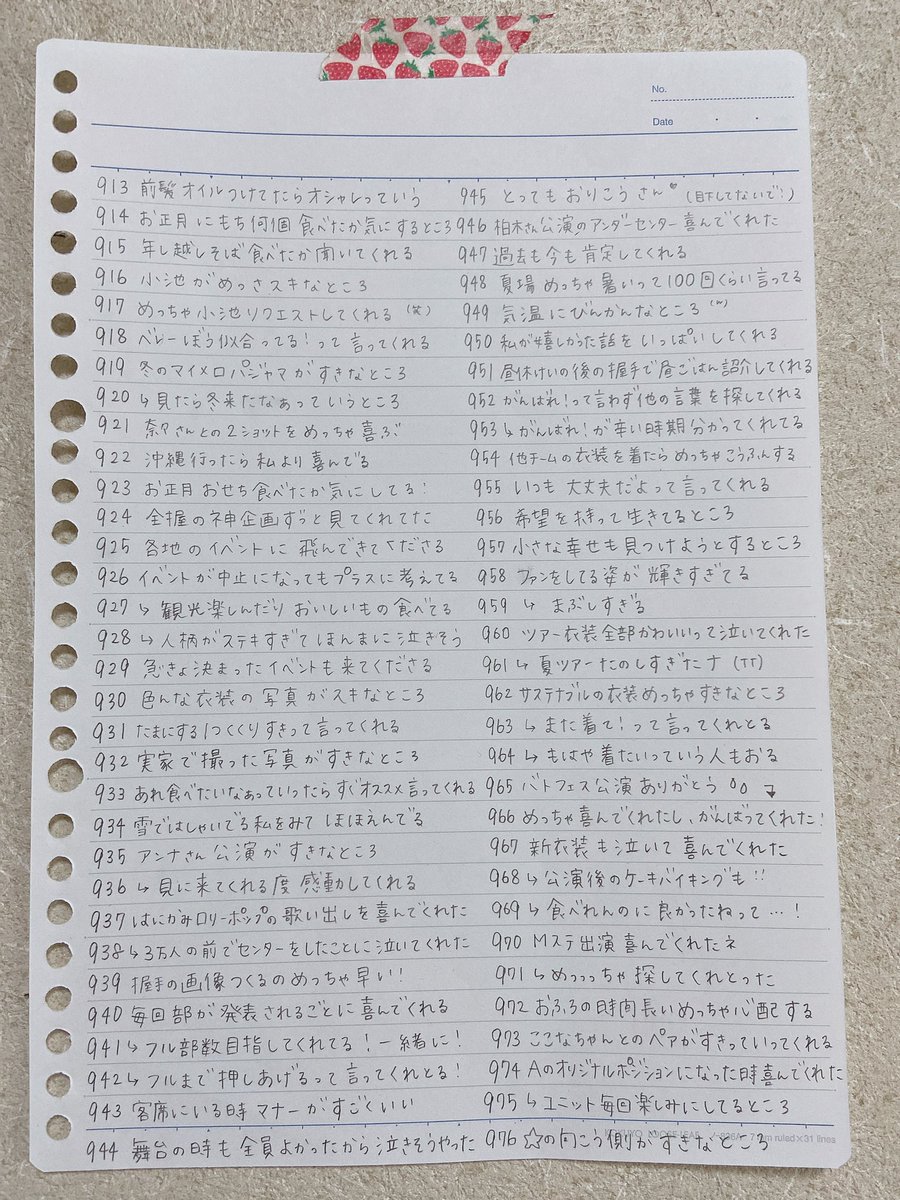 No.
Date
913 前髪オイルつけてたらオシャレっていう
914 お正月にもち何個食べたか気にするところ
915 年し越しそば食べたか聞いてくれる
916 小池がめっさスキなところ
917 めっちゃ小池リクエストしてくれる(笑)
918 ベレーぼう似合ってる!って言ってくれる
919 冬のマイメロパジャマがすきなところ
920 ↳見たら冬来たなあっていうところ
921 奈々さんとの2ショットをめっちゃ喜ぶ
922 沖縄行ったら私より喜んでる
923 お正月おせち食べたか気にしてる!
924 全握の神企画ずっと見てくれてた
925 各地のイベントに飛んできてくださる
926 イベントが中止になってもプラスに考えてる
927 ↳観光楽しんだりおいしいもの食べてる
928 ↳人柄がステキすぎてほんまに泣きそう
929 急きょ決まったイベントも来てくださる
930 色んな衣装の写真がスキなところ
931 たまにする1つくくりすきって言ってくれる
932 実家で撮った写真がすきなところ
933 あれ食べたいなぁっていったらすぐオススメ言ってくれる
934 雪ではしゃいでる私をみてほほえんでる
935 アンナさん公演がすきなところ
936 ↳見に来てくれる度感動してくれる
937 はにかみロリーポップの歌い出しを喜んでくれた
938 ↳3万人の前でセンターをしたことに泣いてくれた
939 握手の画像つくるのめっちゃ早い!!
940 毎回部が発表されるごとに喜んでくれる
941 ↳フル部数目指してくれてる!一緒に!
942 ↳フルまで押しあげるって言ってくれとる!
943 客席にいる時マナーがすごくいい
944 舞台の時も全員よかったから泣きそうやった
945 とってもおりこうさん♥(目下してないで!)
946 柏木さん公演のアンダーセンター喜んでくれた
947 過去も今も肯定してくれる
948 夏場めっちゃ暑いって100回くらい言ってる
949 気温にびんかんなところ(w)
950 私が嬉しかった話をいっぱいしてくれる
951 昼休けいの後の握手で昼ごはん紹介してくれる
952 がんばれ!って言わず他の言葉を探してくれる
953 ↳がんばれ!が辛い時期分かってくれてる
954 他チームの衣装を着たらめっちゃこうふんする
955 いつも大丈夫だよって言ってくれる
956 希望を持って生きてるところ
957 小さな幸せも見つけようとするところ
958 ファンをしてる姿が輝きすぎてる
959 ↳まぶしすぎる
960 ツアー衣装全部かわいいって泣いてくれた
961 ↳夏ツアーたのしすぎたナ(TT)
962 サステナブルの衣装めっちゃすきなところ
963 ↳また着て!って言ってくれとる
964 ↳もはや着たいっていう人もおる
965 バトフェス公演ありがとう
966 めっちゃ喜んでくれたし、がんばってくれた!
967 新衣装も泣いて喜んでくれた
968 ↳公演後のケーキバイキングも!!
969 ↳食べれんのに良かったねって…!
970 Mステ出演喜んでくれたネ
971 ↳めっっっちゃ探してくれとった
972 おふろの時間長いめっちゃ心配する
973 ここなちゃんとのペアがすきっていってくれる
974 Aのオリジナルポジションになった時喜んでくれた
975 ↳ユニット毎回楽しみにしてるところ
976 ☆の向こう側がすきなところ
mm ruled×31 lines